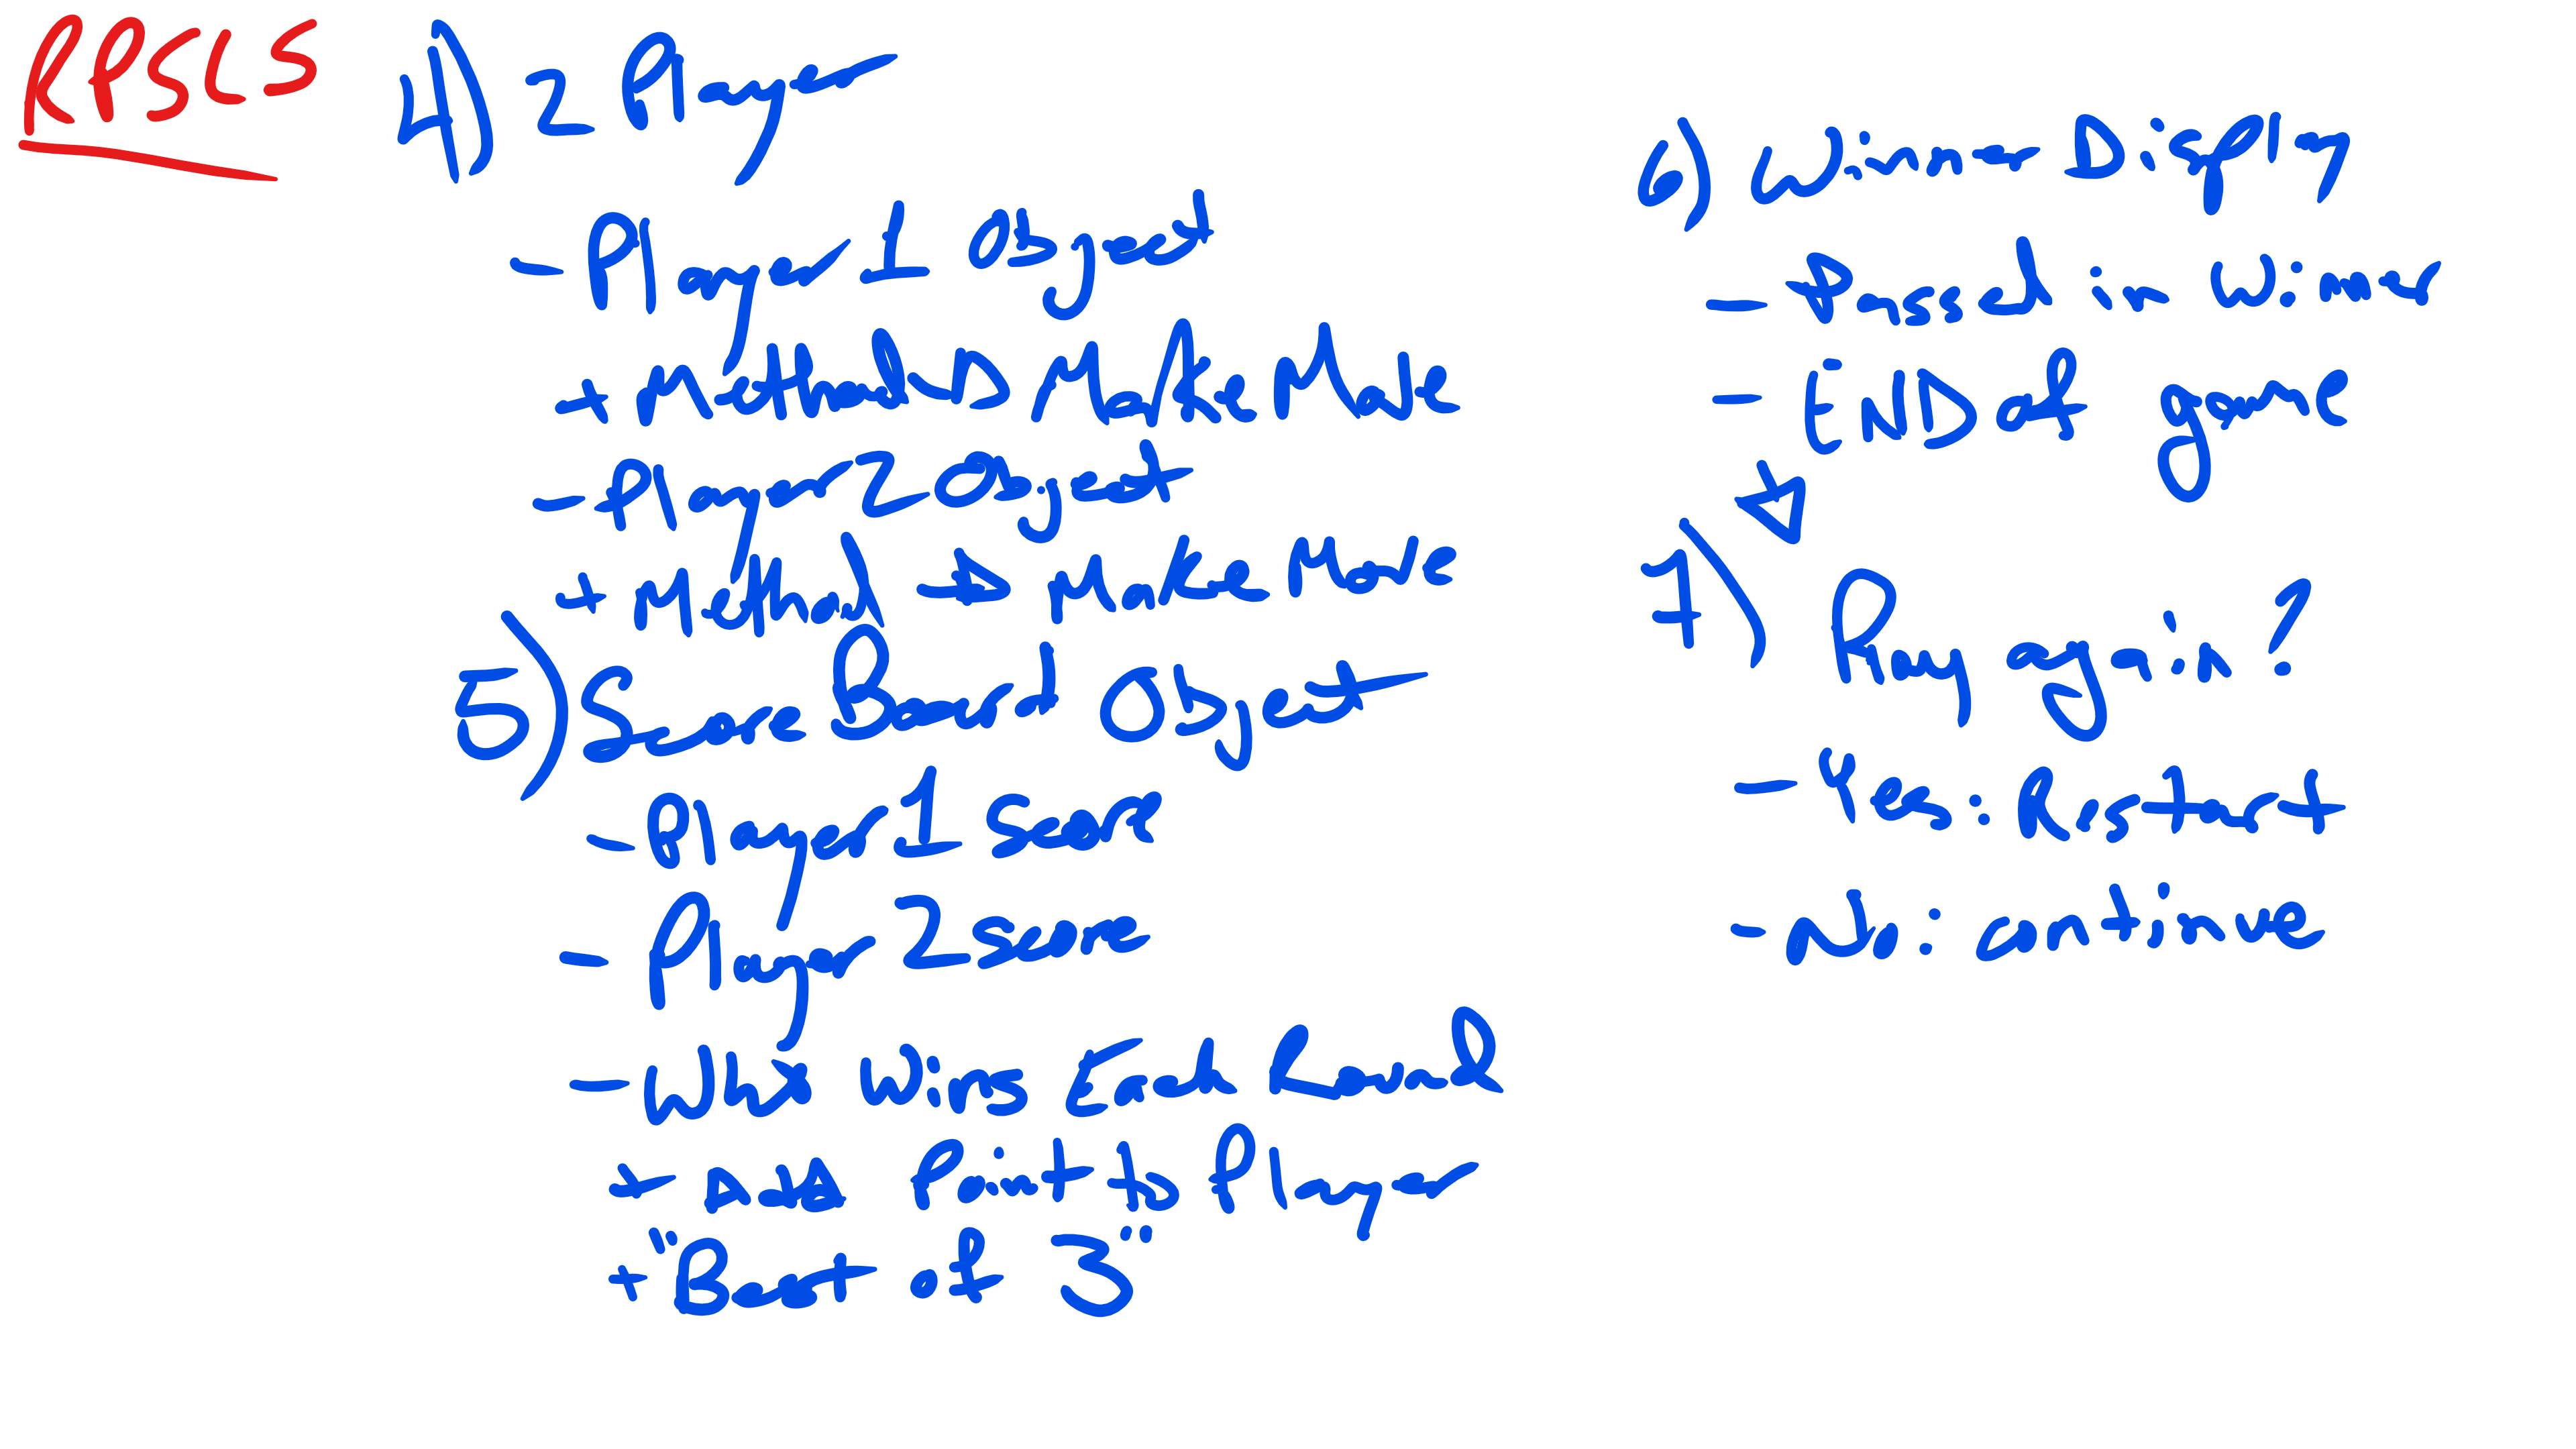 RPSLS
4) 2 Player
- Player 1 Object
+ Method → Make Move
- Player 2 Object
+ Method → Make Move
5) Score Board Object
- Player 1 Score
- Player 2 score
- Who Wins Each Round
+ Adds Point to Player
+ "Best of 3"
6) Winner Display
- Passed in Winner
- END of game
7) Play again?
- Yes: Restart
- No: continue